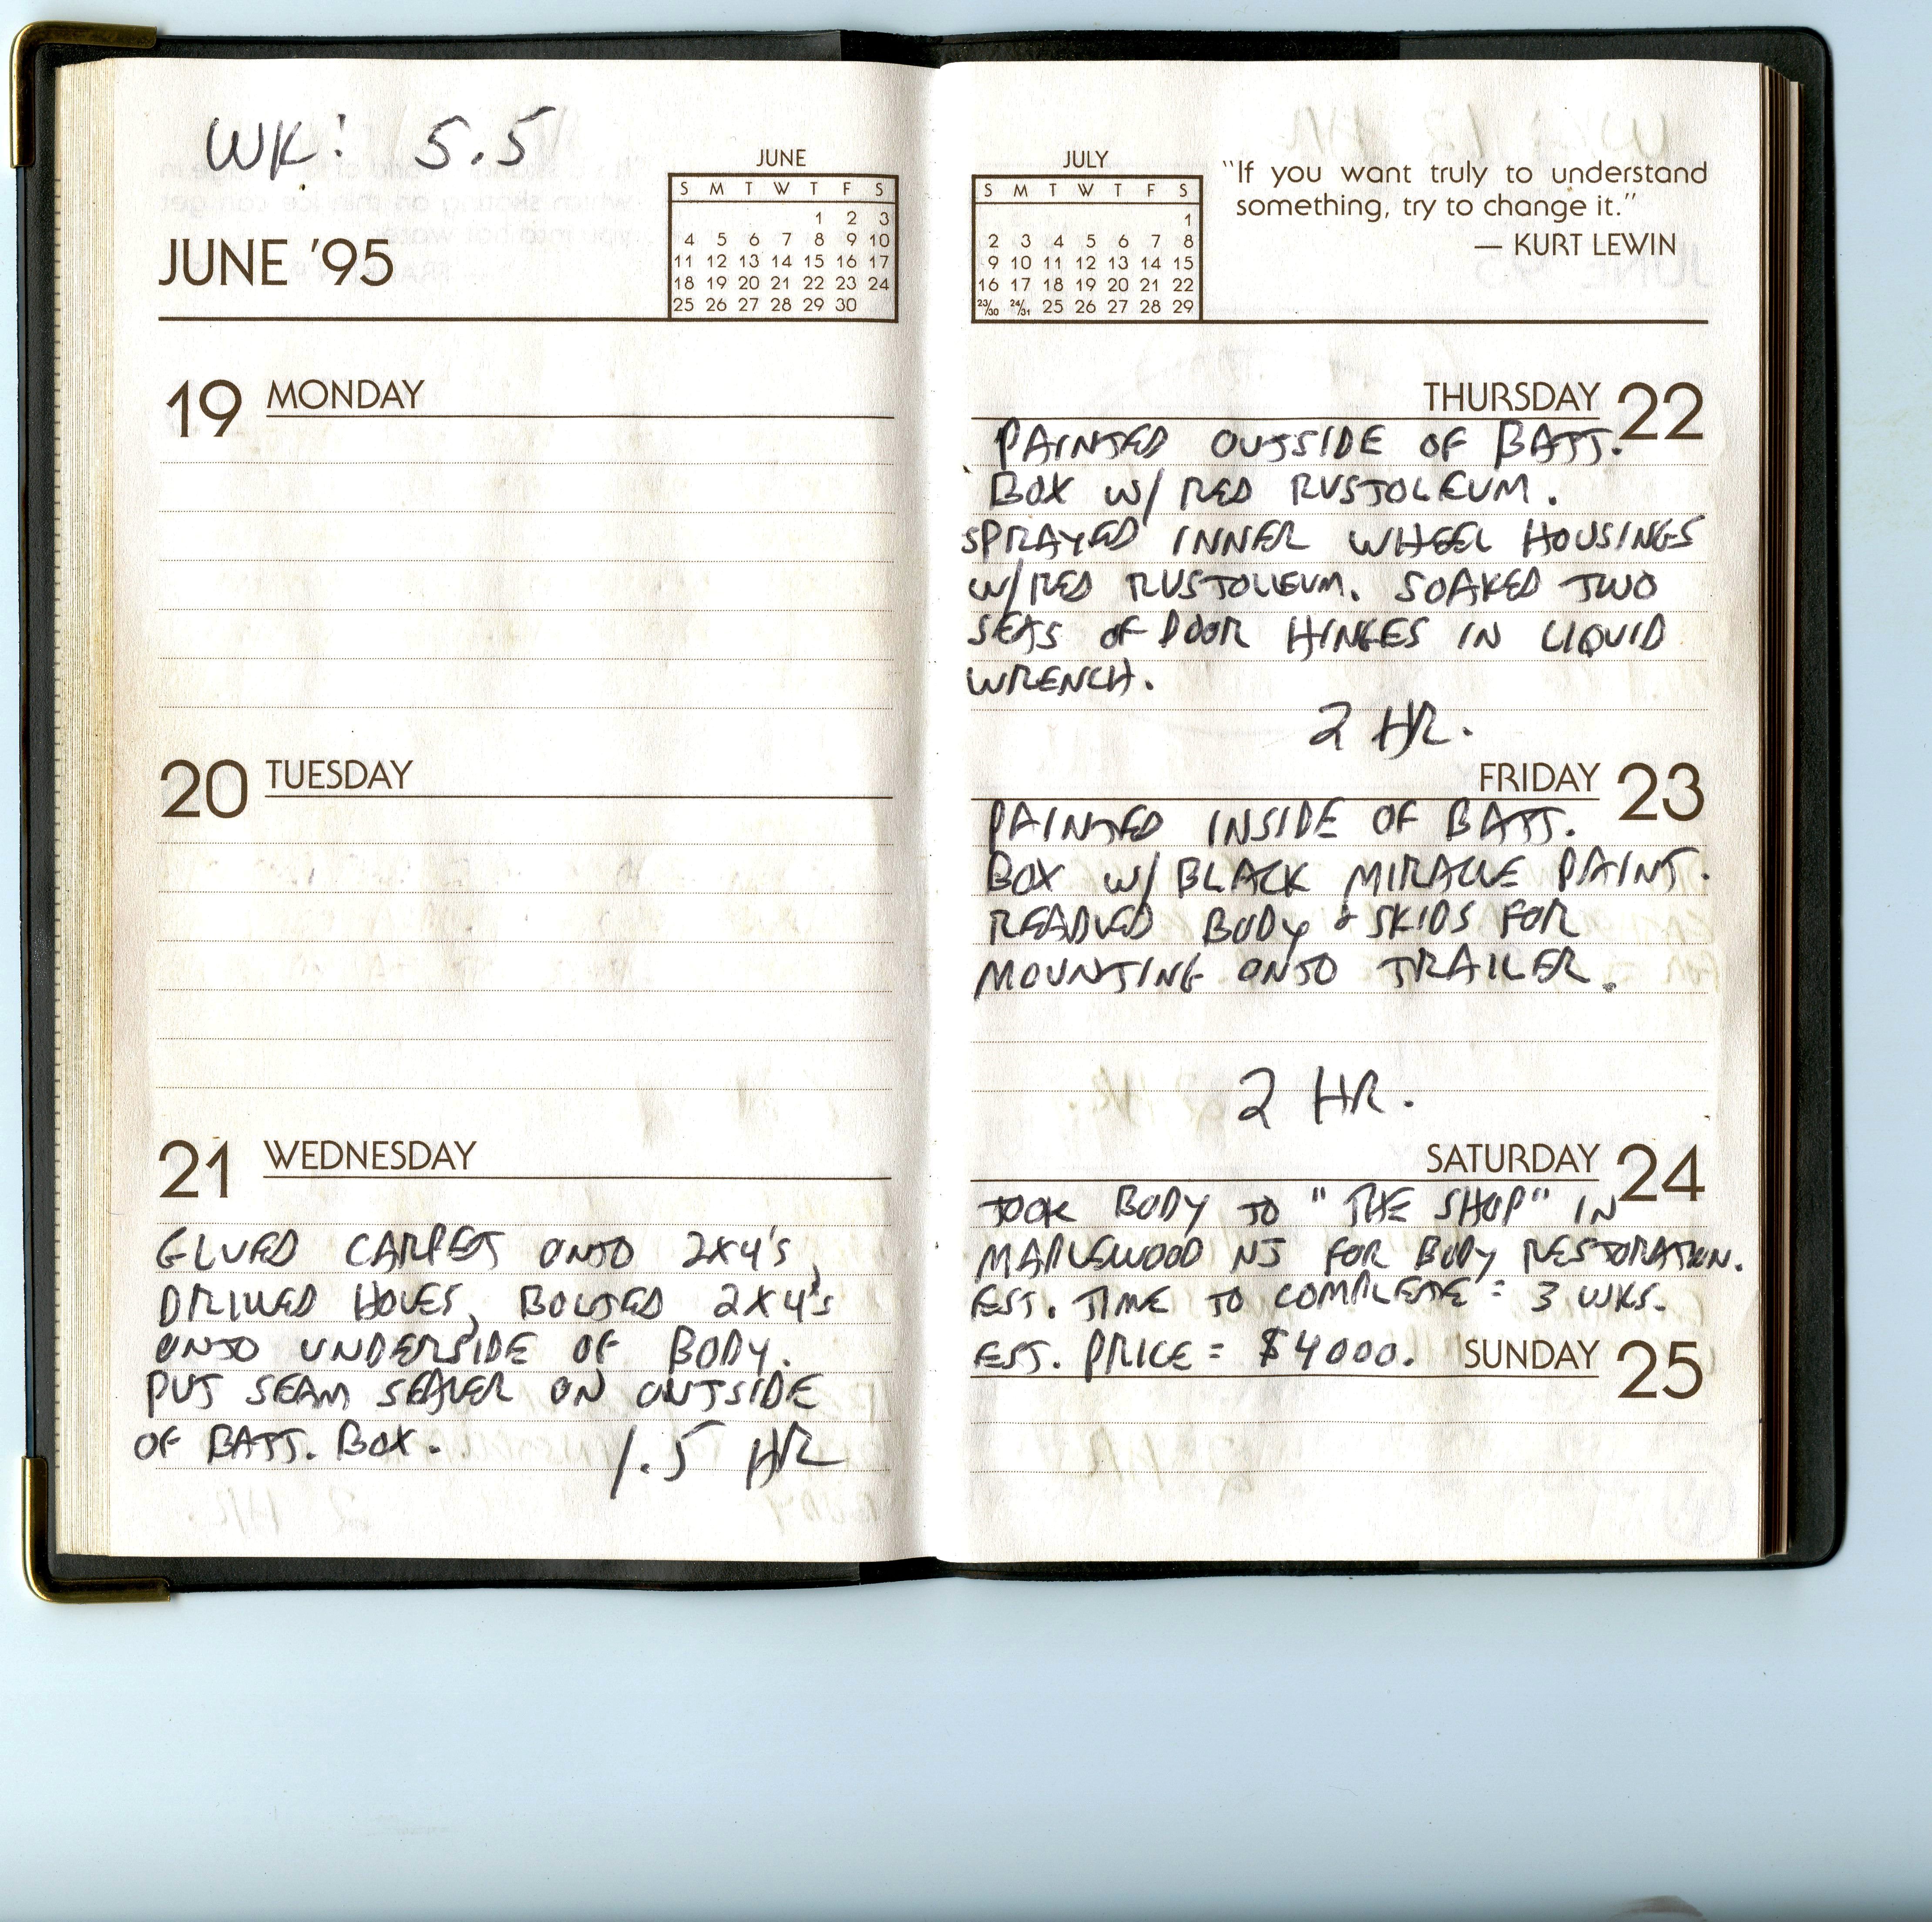 WK: 5.5
JUNE '95
JUNE
S M T W T F S
1 2 3
4 5 6 7 8 9 10
11 12 13 14 15 16 17
18 19 20 21 22 23 24
25 26 27 28 29 30
19 MONDAY
20 TUESDAY
21 WEDNESDAY
GLUED CARPET ONTO 2X4's,
DRILLED HOLES, BOLTED 2X4's
ONTO UNDERSIDE OF BODY.
PUT SEAM SEALER ON OUTSIDE
OF BATT. BOX. 1.5 HR
JULY
S M T W T F S
1
2 3 4 5 6 7 8
9 10 11 12 13 14 15
16 17 18 19 20 21 22
23/30 24/31 25 26 27 28 29
"If you want truly to understand
something, try to change it."
— KURT LEWIN
THURSDAY 22
PAINTED OUTSIDE OF BATT.
BOX W/ RED RUSTOLEUM.
SPRAYED INNER WHEEL HOUSINGS
W/RED RUSTOLEUM. SOAKED TWO
SETS OF DOOR HINGES IN LIQUID
WRENCH.
2 HR.
FRIDAY 23
PAINTED INSIDE OF BATT.
BOX W/ BLACK MIRACLE PAINT.
READIED BODY & SKIDS FOR
MOUNTING ONTO TRAILER.
2 HR.
SATURDAY 24
TOOK BODY TO "THE SHOP" IN
MAPLEWOOD NJ FOR BODY RESTORATION.
EST. TIME TO COMPLETE = 3 WKS.
EST. PRICE = $4000.
SUNDAY 25